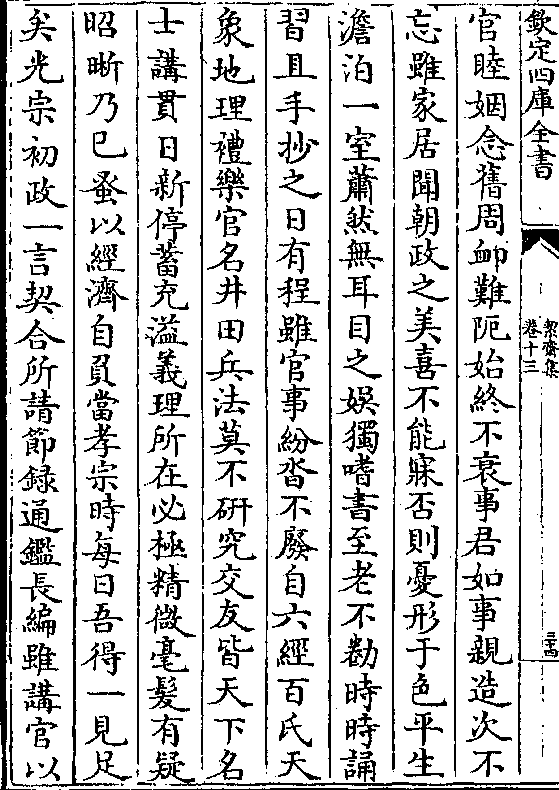 欽定四庫全書
絜齋集
卷十三
三十四
官睦姻念舊周卹難阨始終不衰事君如事親造次不
忘雖家居聞朝政之美喜不能寐否則憂形于色平生
澹泊一室蕭然無耳目之娛獨嗜書至老不勌時時誦
習且手抄之日有程雖官事紛沓不廢自六經百氏天
象地理禮樂官名井田兵法莫不研究交友皆天下名
士講貫日新停蓄充溢義理所在必極精微毫髮有疑
昭晣乃已蚤以經濟自負當孝宗時每曰吾得一見足
矣光宗初政一言契合所請節録通鑑長編雖講官以